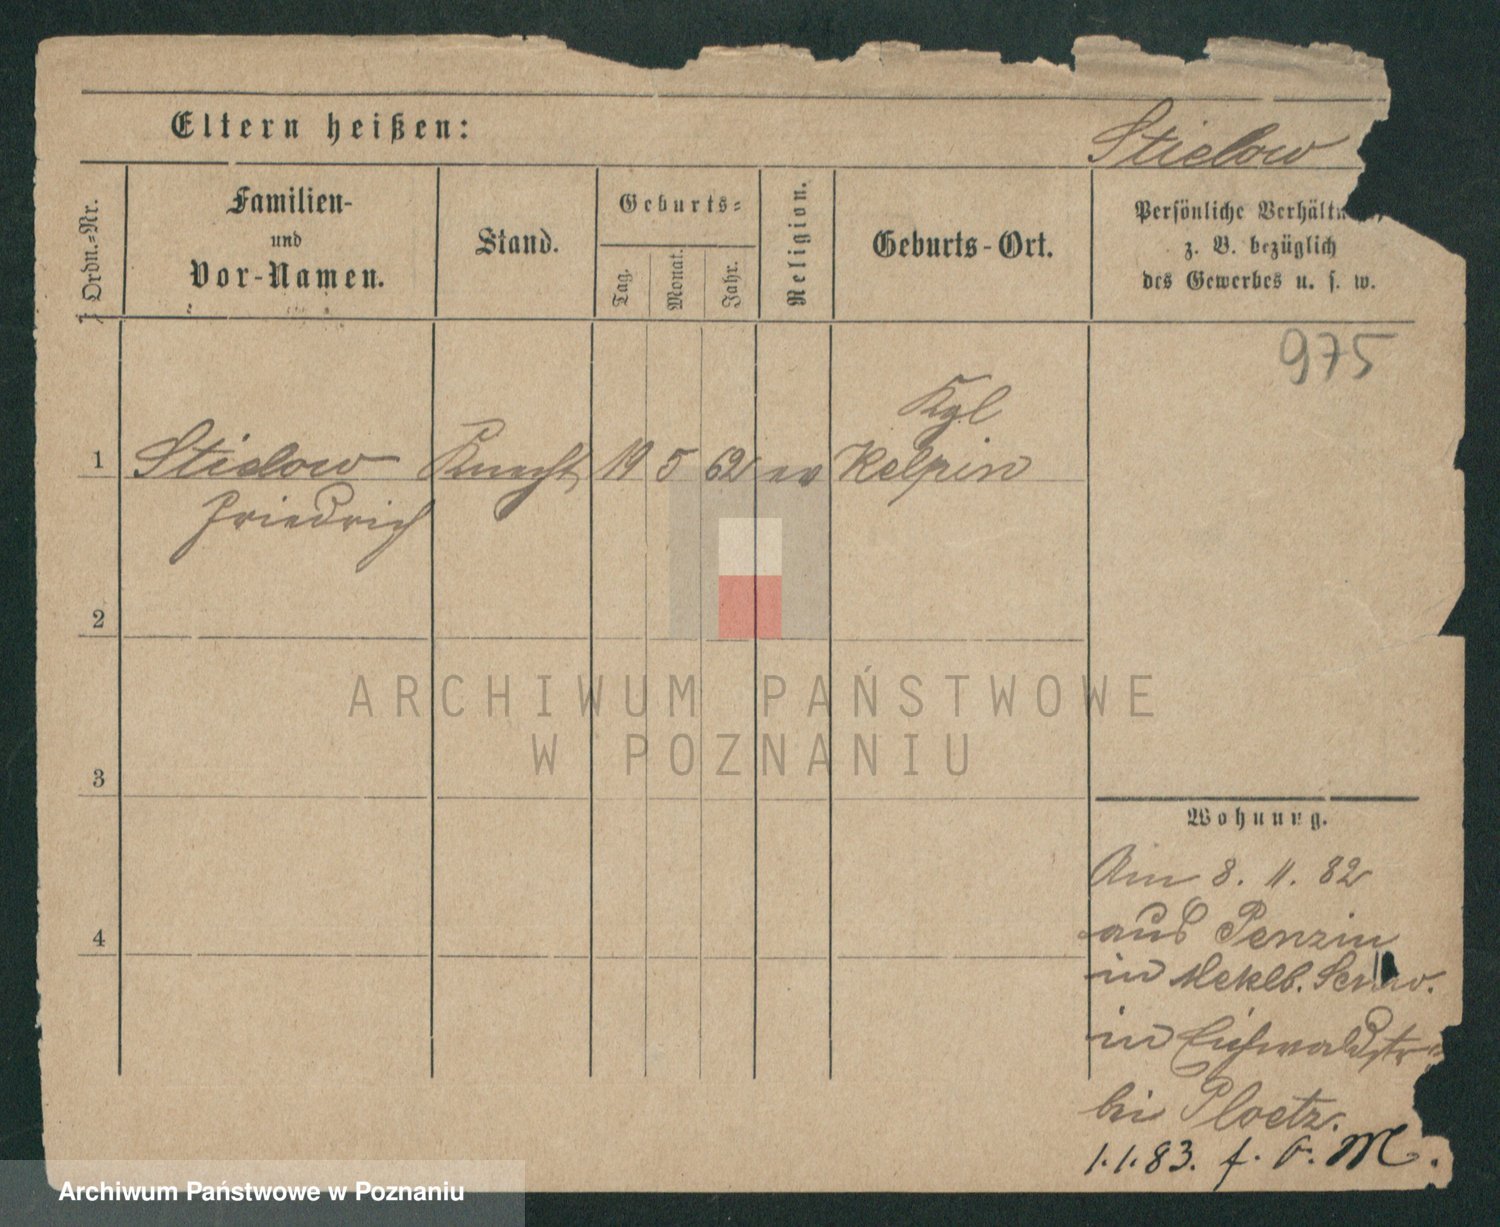 Eltern heißen:
Stielow
Ordn.=Nr.
Familien-
und
Vor-Namen.
Stand.
Geburts=
Tag.
Monat.
Jahr.
Religion.
Geburts-Ort.
Persönliche Verhältn
z. B. bezüglich
des Gewerbes u. s. w.
975
Kgl
1 Stielow Knecht 19 5 62 ev Kelpin
Friedrich
2
3
4
ARCHIWUM PAŃSTWOWE
W POZNANIU
Wohnung.
Am 8. 11. 82
aus Penzin
in Meklb. Schw.
in Eichwaldstr
bei Ploetz.
1.1.83. f. v. M.
Archiwum Państwowe w Poznaniu